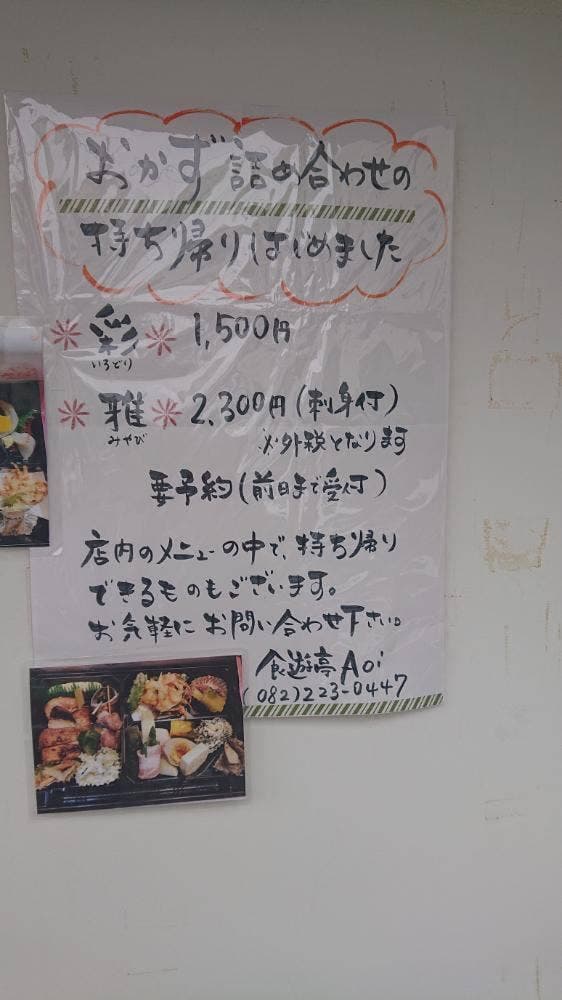 おかず詰め合わせの
持ち帰りはじめました
＊彩＊ 1,500円
いろどり
＊雅＊ 2,300円(刺身付)
みやび
※外税となります
要予約(前日まで受付)
店内のメニューの中で、持ち帰り
できるものもございます。
お気軽にお問い合わせ下さい。
食遊亭Aoi
(082)223-0447